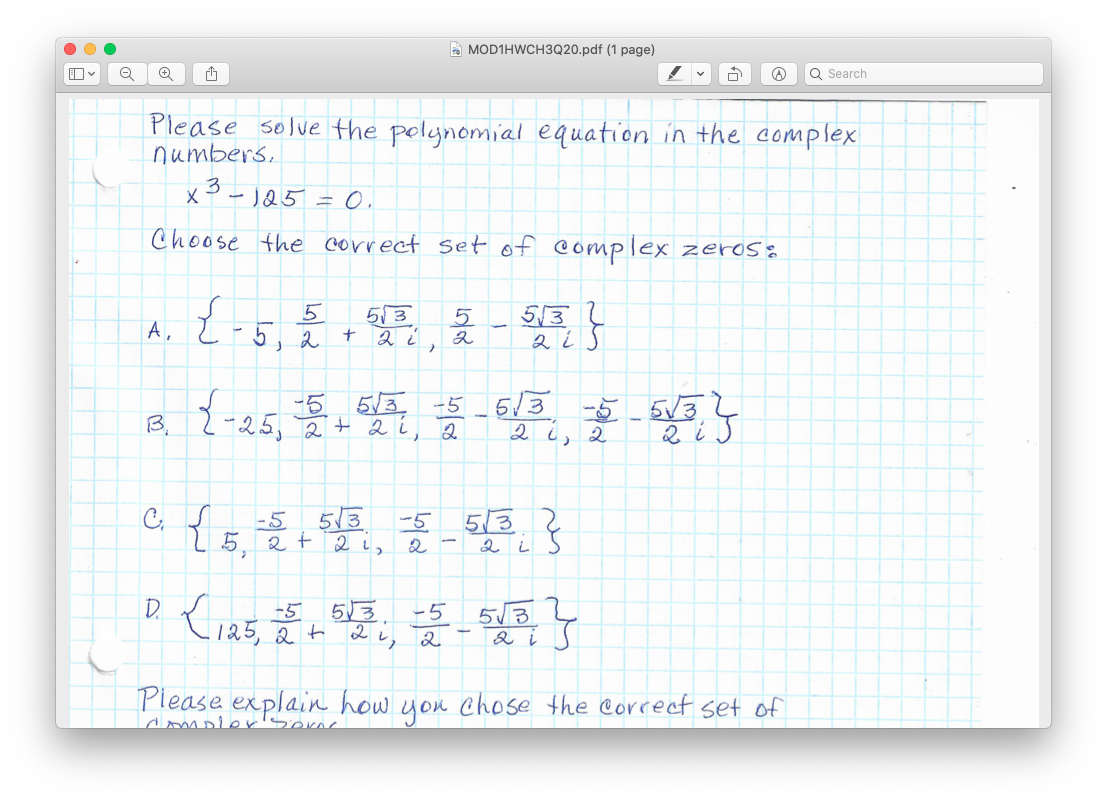 MOD1HWCH3Q20.pdf (1 page)
Search
Please solve the polynomial equation in the complex
numbers.
x³ - 125 = 0.
Choose the correct set of complex zeros:
A. { -5, 5/2 + 5√3/2 i, 5/2 - 5√3/2 i }
B. { -25, -5/2 + 5√3/2 i, -5/2 - 5√3/2 i, -5/2 - 5√3/2 i }
C. { 5, -5/2 + 5√3/2 i, -5/2 - 5√3/2 i }
D. { 125, -5/2 + 5√3/2 i, -5/2 - 5√3/2 i }
Please explain how you chose the correct set of
complex zeros